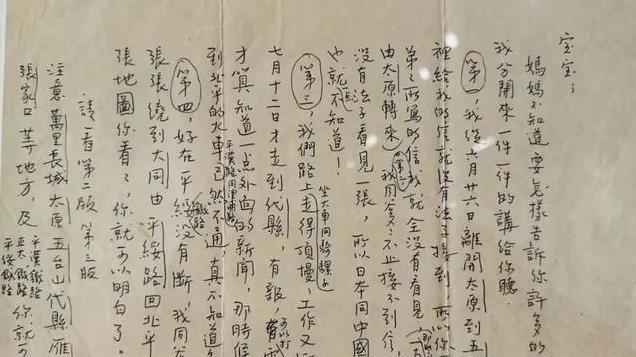 宝宝：
媽媽不知道要怎樣告訴你許多的
我分開來一件一件的講給你聽.
第一，我從六月廿六日離開太原到五
裡給我的信就沒有法子接到，所以你
弟弟所寫的信我就全沒有看見
由太原轉來）第二 我同爹爹不止接不到信，
沒有法子看見一張，所以日本同中國
也就不知道！
坐大車同騎騾子
第三，我們路上走得頂慢，工作又
七月十二日才走到代縣，有報，
才算知道一点外面的新聞，那時候
到北平的火車
平漢路同津浦路
已然不通，真不知道
第四，好在平綏鉄路沒有断，我同
張張繞到大同由平綏路回北平
張地圖你看看，你就可以明白了。
請看第二版 第三版
注意萬里長城太原五台山代縣雁
張家口等地方，及
平漢鉄路
正太鉄路
平綏鉄路
你就可